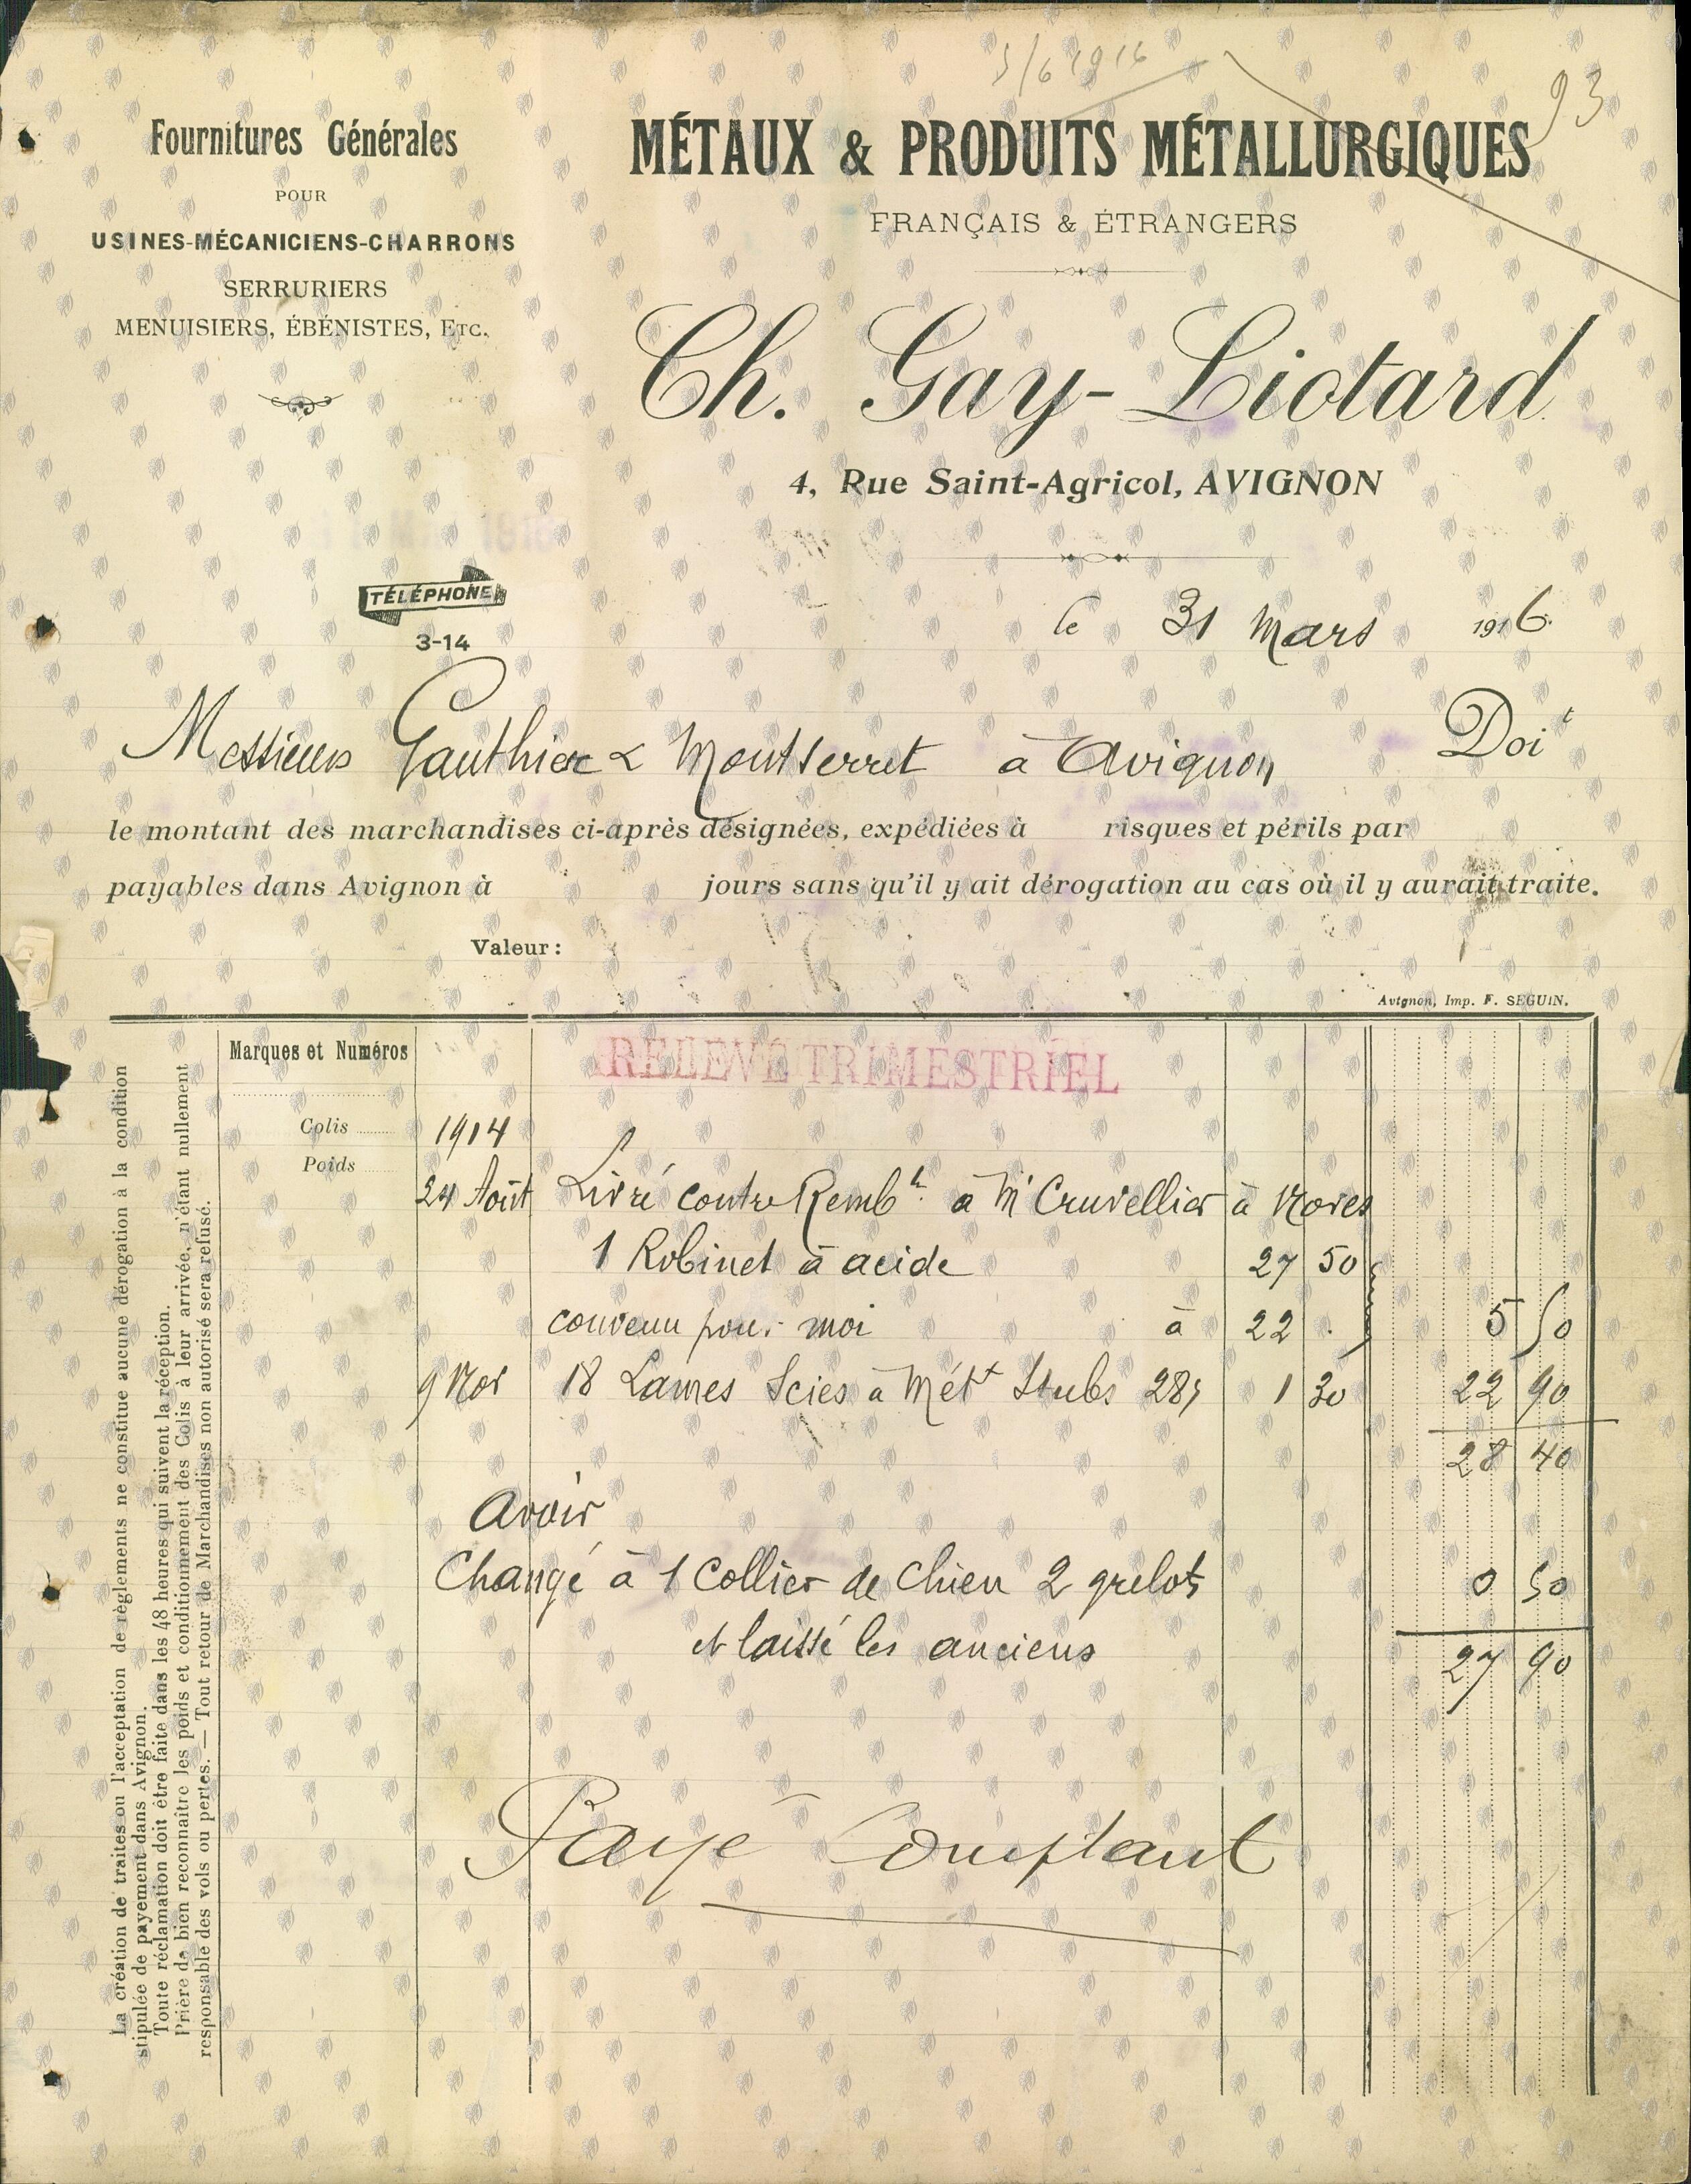 5/6 1916
93
Fournitures Générales
POUR
USINES-MÉCANICIENS-CHARRONS
SERRURIERS
MENUISIERS, ÉBÉNISTES, ETC.
MÉTAUX & PRODUITS MÉTALLURGIQUES
FRANÇAIS & ÉTRANGERS
Ch. Gay-Liotard
4, Rue Saint-Agricol, AVIGNON
TÉLÉPHONE
3-14
le 31 Mars 1916.
Messieurs Gauthier & Montserret à Avignon Doit
le montant des marchandises ci-après désignées, expédiées à risques et périls par
payables dans Avignon à jours sans qu'il y ait dérogation au cas où il y aurait traite.
Valeur :
Avignon, Imp. F. SEGUIN.
Marques et Numéros
RELEVÉ TRIMESTRIEL
Colis
Poids
1914
24 Août Livré contre Rembt. à Mr Cruvellier à Noves
1 Robinet à acide 27 50
convenu pour moi à 22 . 5 50
9 Nov 18 Lames Scies à Mét Stubs 28 1 30 22 90
28 40
Avoir
Changé à 1 Collier de chien 2 grelots 0 50
et laissé les anciens
27 90
Payé Comptant
La création de traites ou l'acceptation de règlements ne constitue aucune dérogation à la condition
stipulée de payement dans Avignon.
Toute réclamation doit être faite dans les 48 heures qui suivent la réception.
Prière de bien reconnaître les poids et conditionnement des Colis à leur arrivée, n'étant nullement
responsable des vols ou pertes. — Tout retour de Marchandises non autorisé sera refusé.